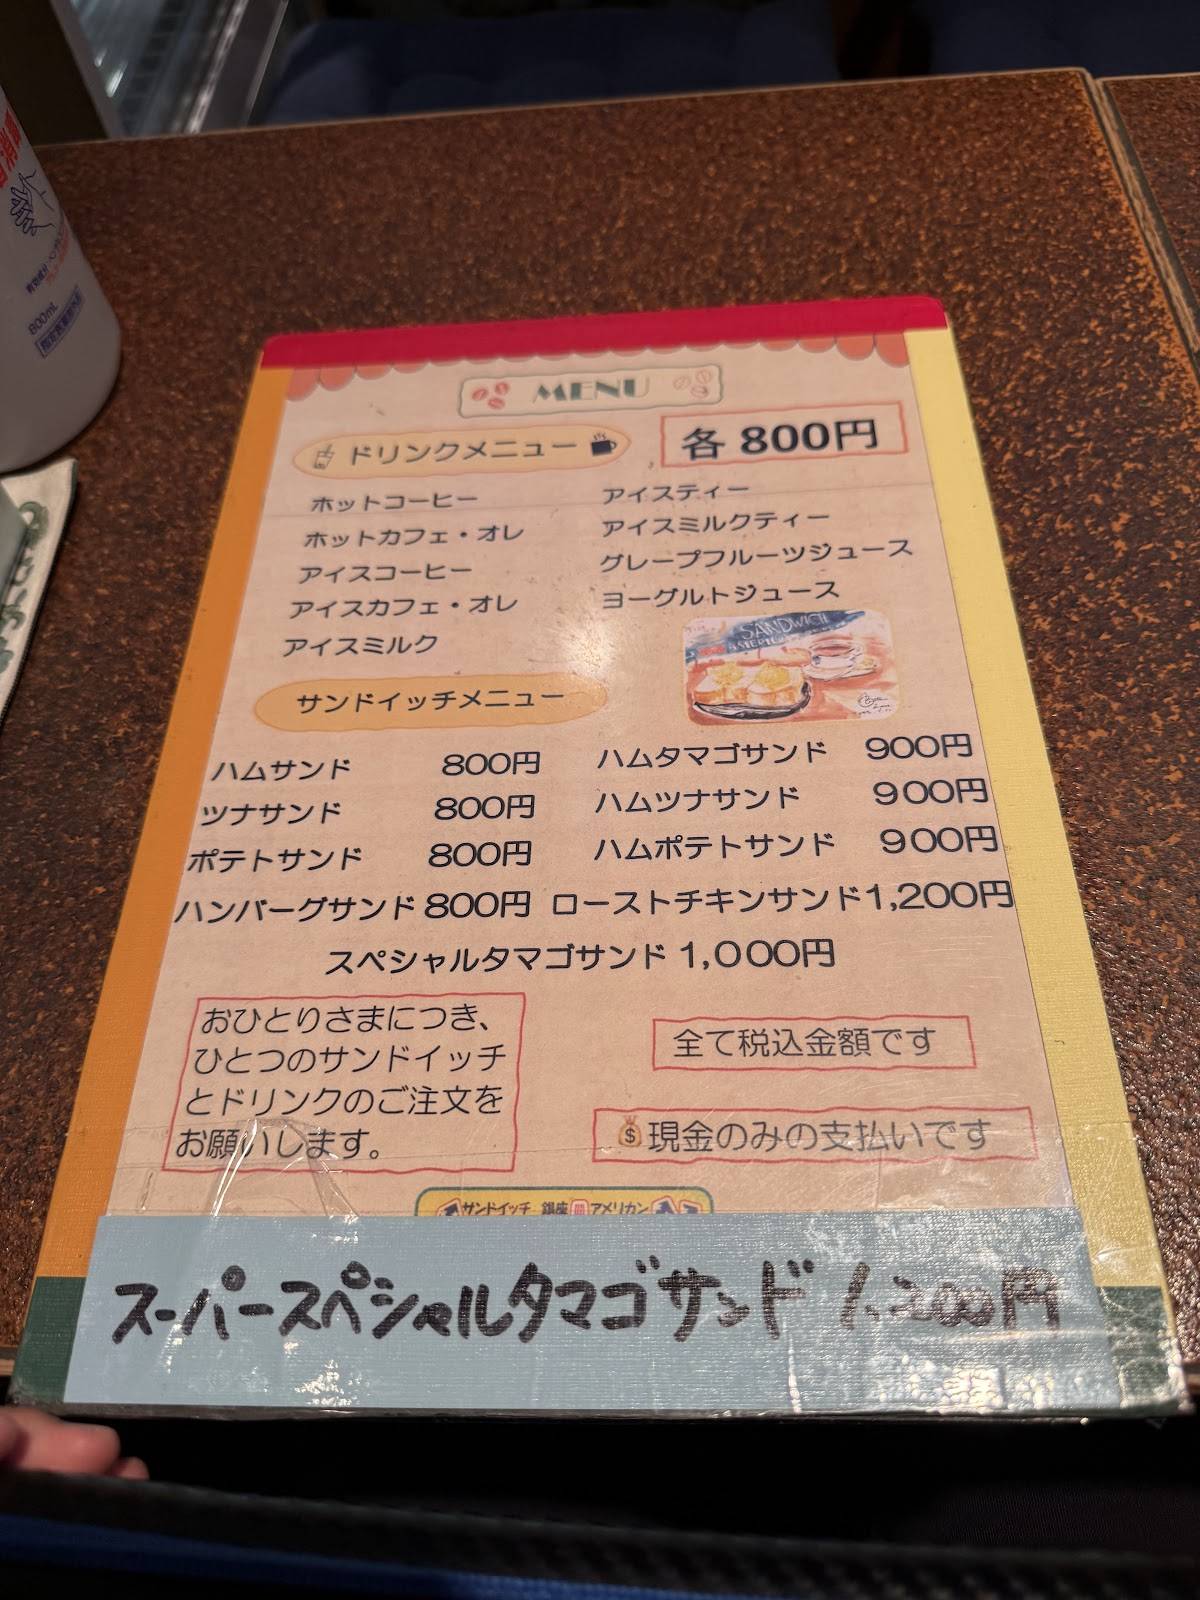 800mL
MENU
ドリンクメニュー
各 800円
ホットコーヒー
ホットカフェ・オレ
アイスコーヒー
アイスカフェ・オレ
アイスミルク
アイスティー
アイスミルクティー
グレープフルーツジュース
ヨーグルトジュース
SANDWICH
サンドイッチメニュー
ハムサンド 800円
ツナサンド 800円
ポテトサンド 800円
ハンバーグサンド 800円
ハムタマゴサンド 900円
ハムツナサンド 900円
ハムポテトサンド 900円
ローストチキンサンド 1,200円
スペシャルタマゴサンド 1,000円
おひとりさまにつき、
ひとつのサンドイッチ
とドリンクのご注文を
お願いします。
全て税込金額です
現金のみの支払いです
サンドイッチ 銀座 アメリカン
スーパースペシャルタマゴサンド 1,200円